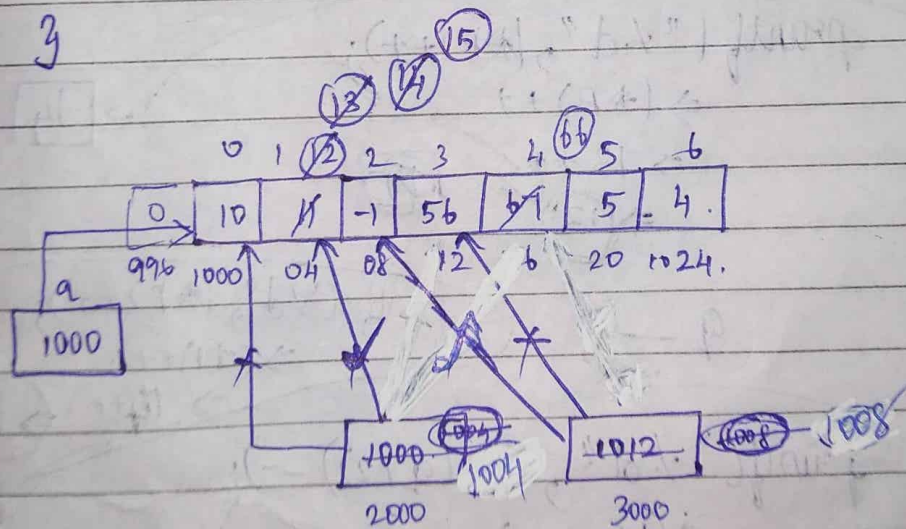 3
15
13 14
0 1 12 2 3 4 66 5 6
0 10 11 -1 56 67 5 4
996 1000 04 08 12 6 20 1024.
a
1000
1000 1004 1012 1008 1008
1004
2000 3000